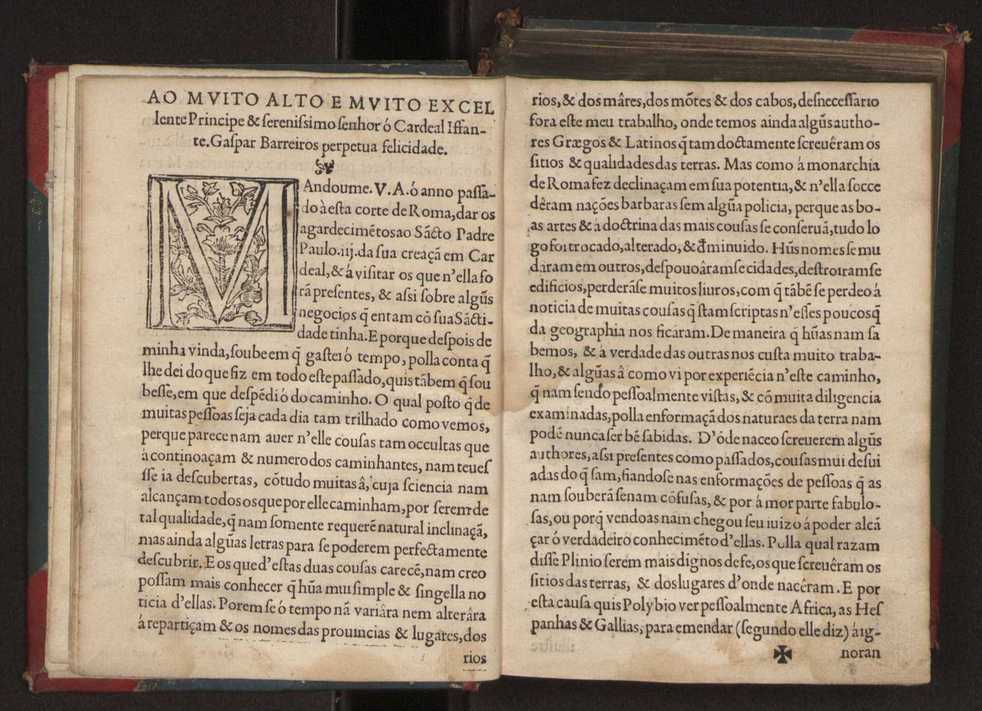 AO MVITO ALTO E MVITO EXCEL
lente Principe & ſereniſsimo ſenhor ó Cardeal Iffan-
te. Gaſpar Barreiros perpetua felicidade.
MAndoume. V. A. ó anno paſſa-
do à eſta corte de Roma, dar os
agardecimẽtos ao Sãcto Padre
Paulo. iij. da ſua creaçã em Car
deal, & á viſitar os que n'ella fo
rã preſentes, & aſsi ſobre algũs
negocios q̃ entam cõ ſua Sãcti-
dade tinha. E porque deſpois de
minha vinda, ſoube em q̃ gaſtei ó tempo, polla conta q̃
lhe dei do que fiz em todo eſte paſſado, quis tãbem q̃ ſou
beſſe, em que deſpẽdi ó do caminho. O qual poſto q̃ de
muitas peſſoas ſeja cada dia tam trilhado como vemos,
perque parece nam auer n'elle couſas tam occultas que
à continoaçam & numero dos caminhantes, nam teueſ
ſſe ia deſcubertas, cõtudo muitas â, cuja ſciencia nam
alcançam todos os que por elle caminham, por ſerem de
tal qualidade, q̃ nam ſomente requerẽ natural inclinaçã,
mas ainda algũas letras para ſe poderem perfectamente
deſcubrir. E os que d'eſtas duas couſas carecẽ, nam creo
poſſam mais conhecer q̃ hũa mui ſimple & ſingella no
ticia d'ellas. Porem ſe ó tempo nã variâra nem alterâra
á repartiçam & os nomes das prouincias & lugares, dos
rios
rios, & dos mâres, dos mõtes & dos cabos, deſneceſſario
fora eſte meu trabalho, onde temos ainda algũs autho-
res Grægos & Latinos q̃ tam doctamente ſcreuêram os
ſitios & qualidades das terras. Mas como á monarchia
de Roma fez declinaçam em ſua potentia, & n'ella ſocce
dêram nações barbaras ſem algũa policia, perque as bo-
as artes & à doctrina das mais couſas ſe conſeruã, tudo lo
go foi trocado, alterado, & diminuido. Hũs nomes ſe mu
daram em outros, deſpouoâramſe cidades, deſtroiramſe
edificios, perderãſe muitos liuros, com q̃ tãbẽ ſe perdeo á
noticia de muitas couſas q̃ ſtam ſcriptas n'eſſes poucos q̃
da geographia nos ficáram. De maneira q̃ hũas nam ſa
bemos, & à verdade das outras nos cuſta muito traba-
lho, & algũas â como vi por experiẽcia n'eſte caminho,
q̃ nam ſendo peſſoalmente viſtas, & cõ muita diligencia
examinadas, polla enformaçã dos naturaes da terra nam
podẽ nunca ſer bẽ ſabidas. D'õde naceo ſcreuerem algũs
authores, aſsi preſentes como paſſados, couſas mui deſui
adas do q̃ ſam, fiandoſe nas enformações de peſſoas q̃ as
nam ſouberã ſenam cõfuſas, & por á mor parte fabulo-
ſas, ou porq̃ vendoas nam chegou ſeu iuizo á poder alcã
çar ó verdadeiro conhecimẽto d'ellas. Polla qual razam
diſſe Plinio ſerem mais dignos de fe, os que ſcreuêram os
ſitios das terras, & dos lugares d'onde nacêram. E por
eſta cauſa quis Polybio ver peſſoalmente Africa, as Heſ
panhas & Gallias, para emendar (ſegundo elle diz) á ig-
✠ noran